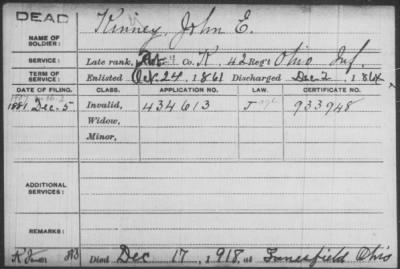 DEAD
NAME OF SOLDIER: Kinney, John E.
SERVICE: Late rank, Co. K, 42 Reg't Ohio Inf.
TERM OF SERVICE: Enlisted Oct. 24, 1861 Discharged Dec. 2, 1864
DATE OF FILING. CLASS. APPLICATION NO. LAW. CERTIFICATE NO.
1881, Dec-5 Invalid, 434613 J 933948
Widow,
Minor,
ADDITIONAL SERVICES:
REMARKS:
Died Dec 17, 1918, at Zanesfield Ohio